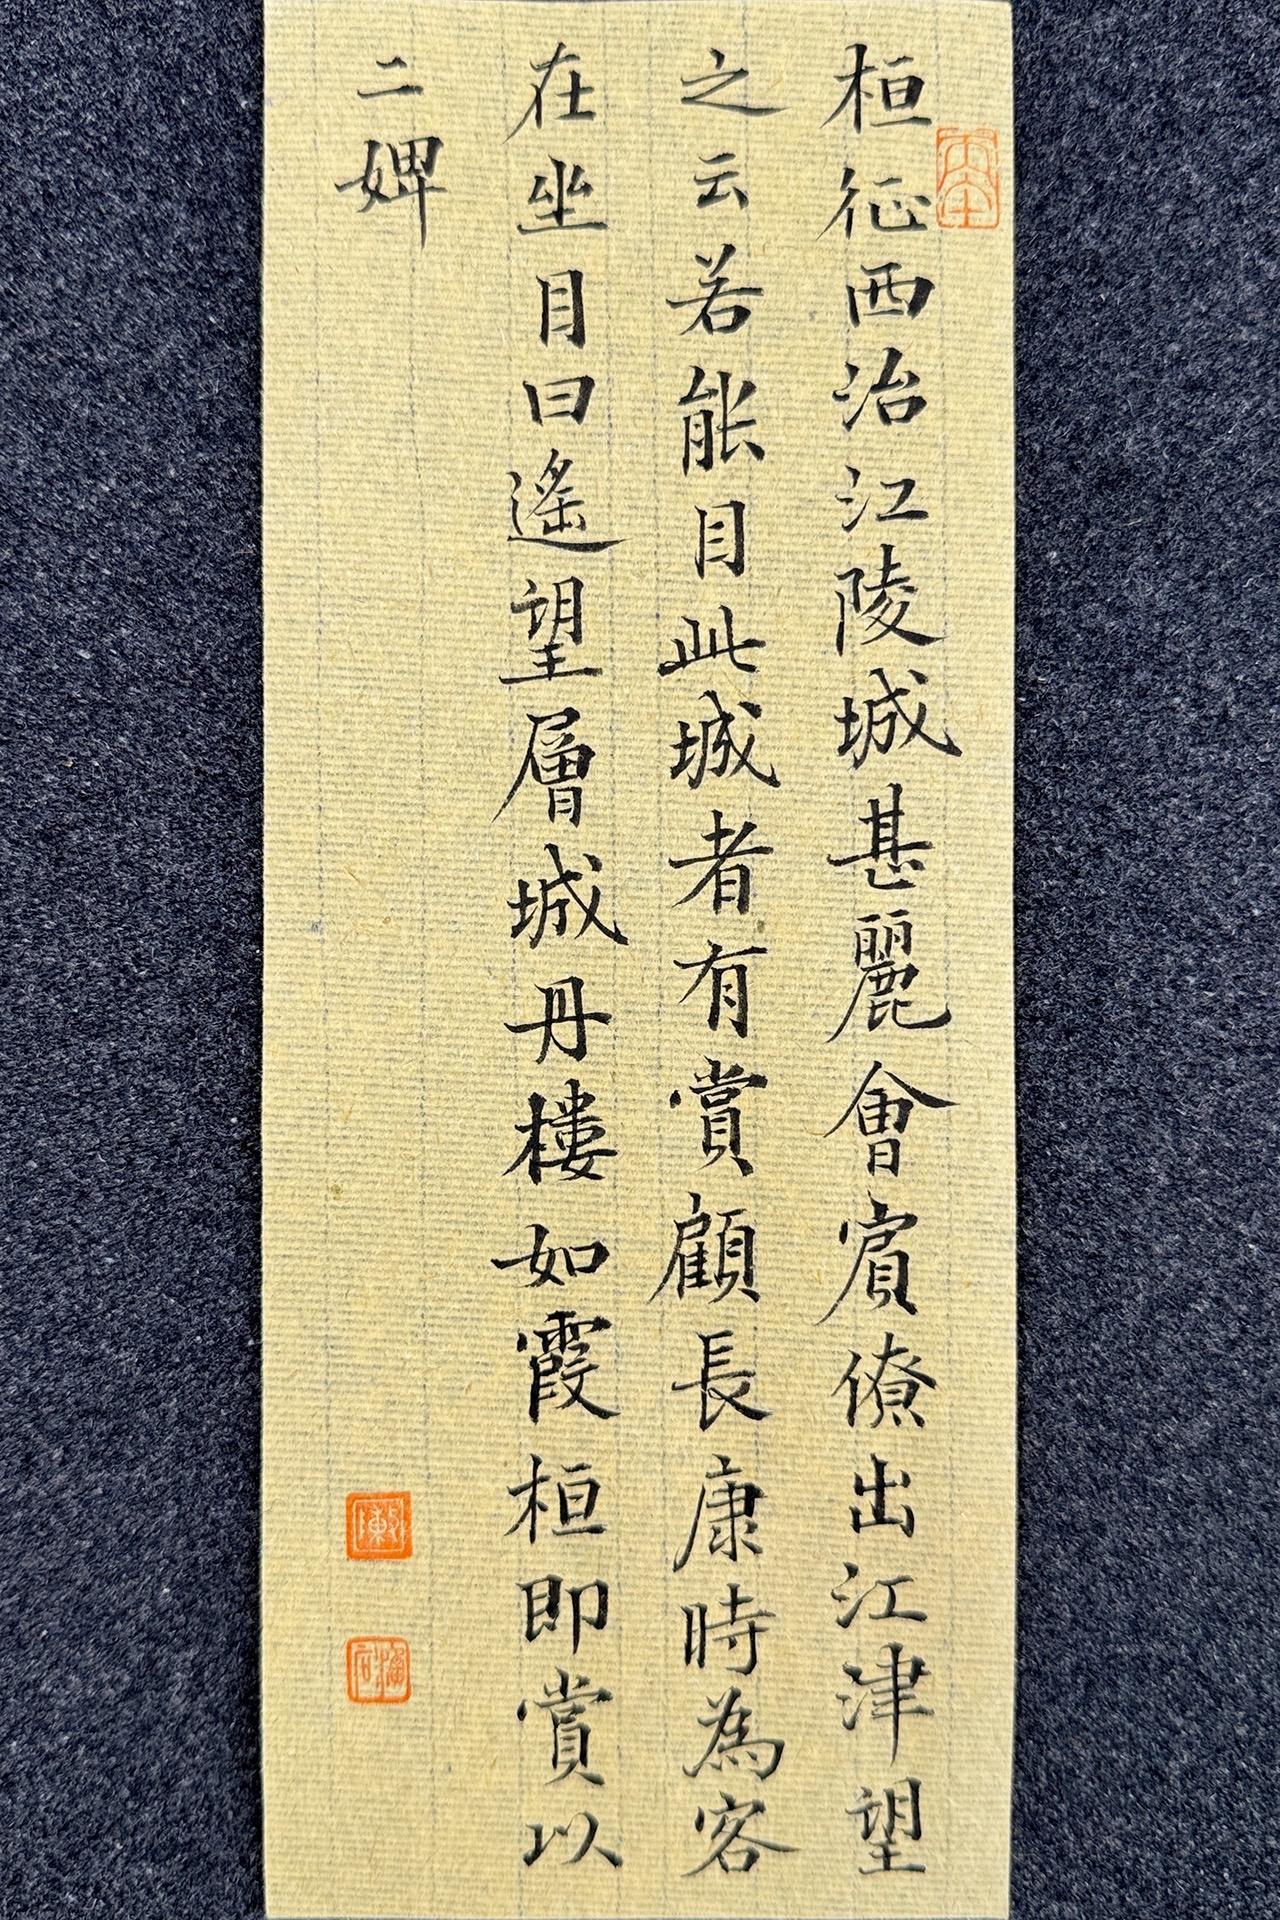 桓征西治江陵城甚麗會賓僚出江津望
之云若能目此城者有賞顧長康時為客
在坐目曰遙望層城丹樓如霞桓即賞以
二婢